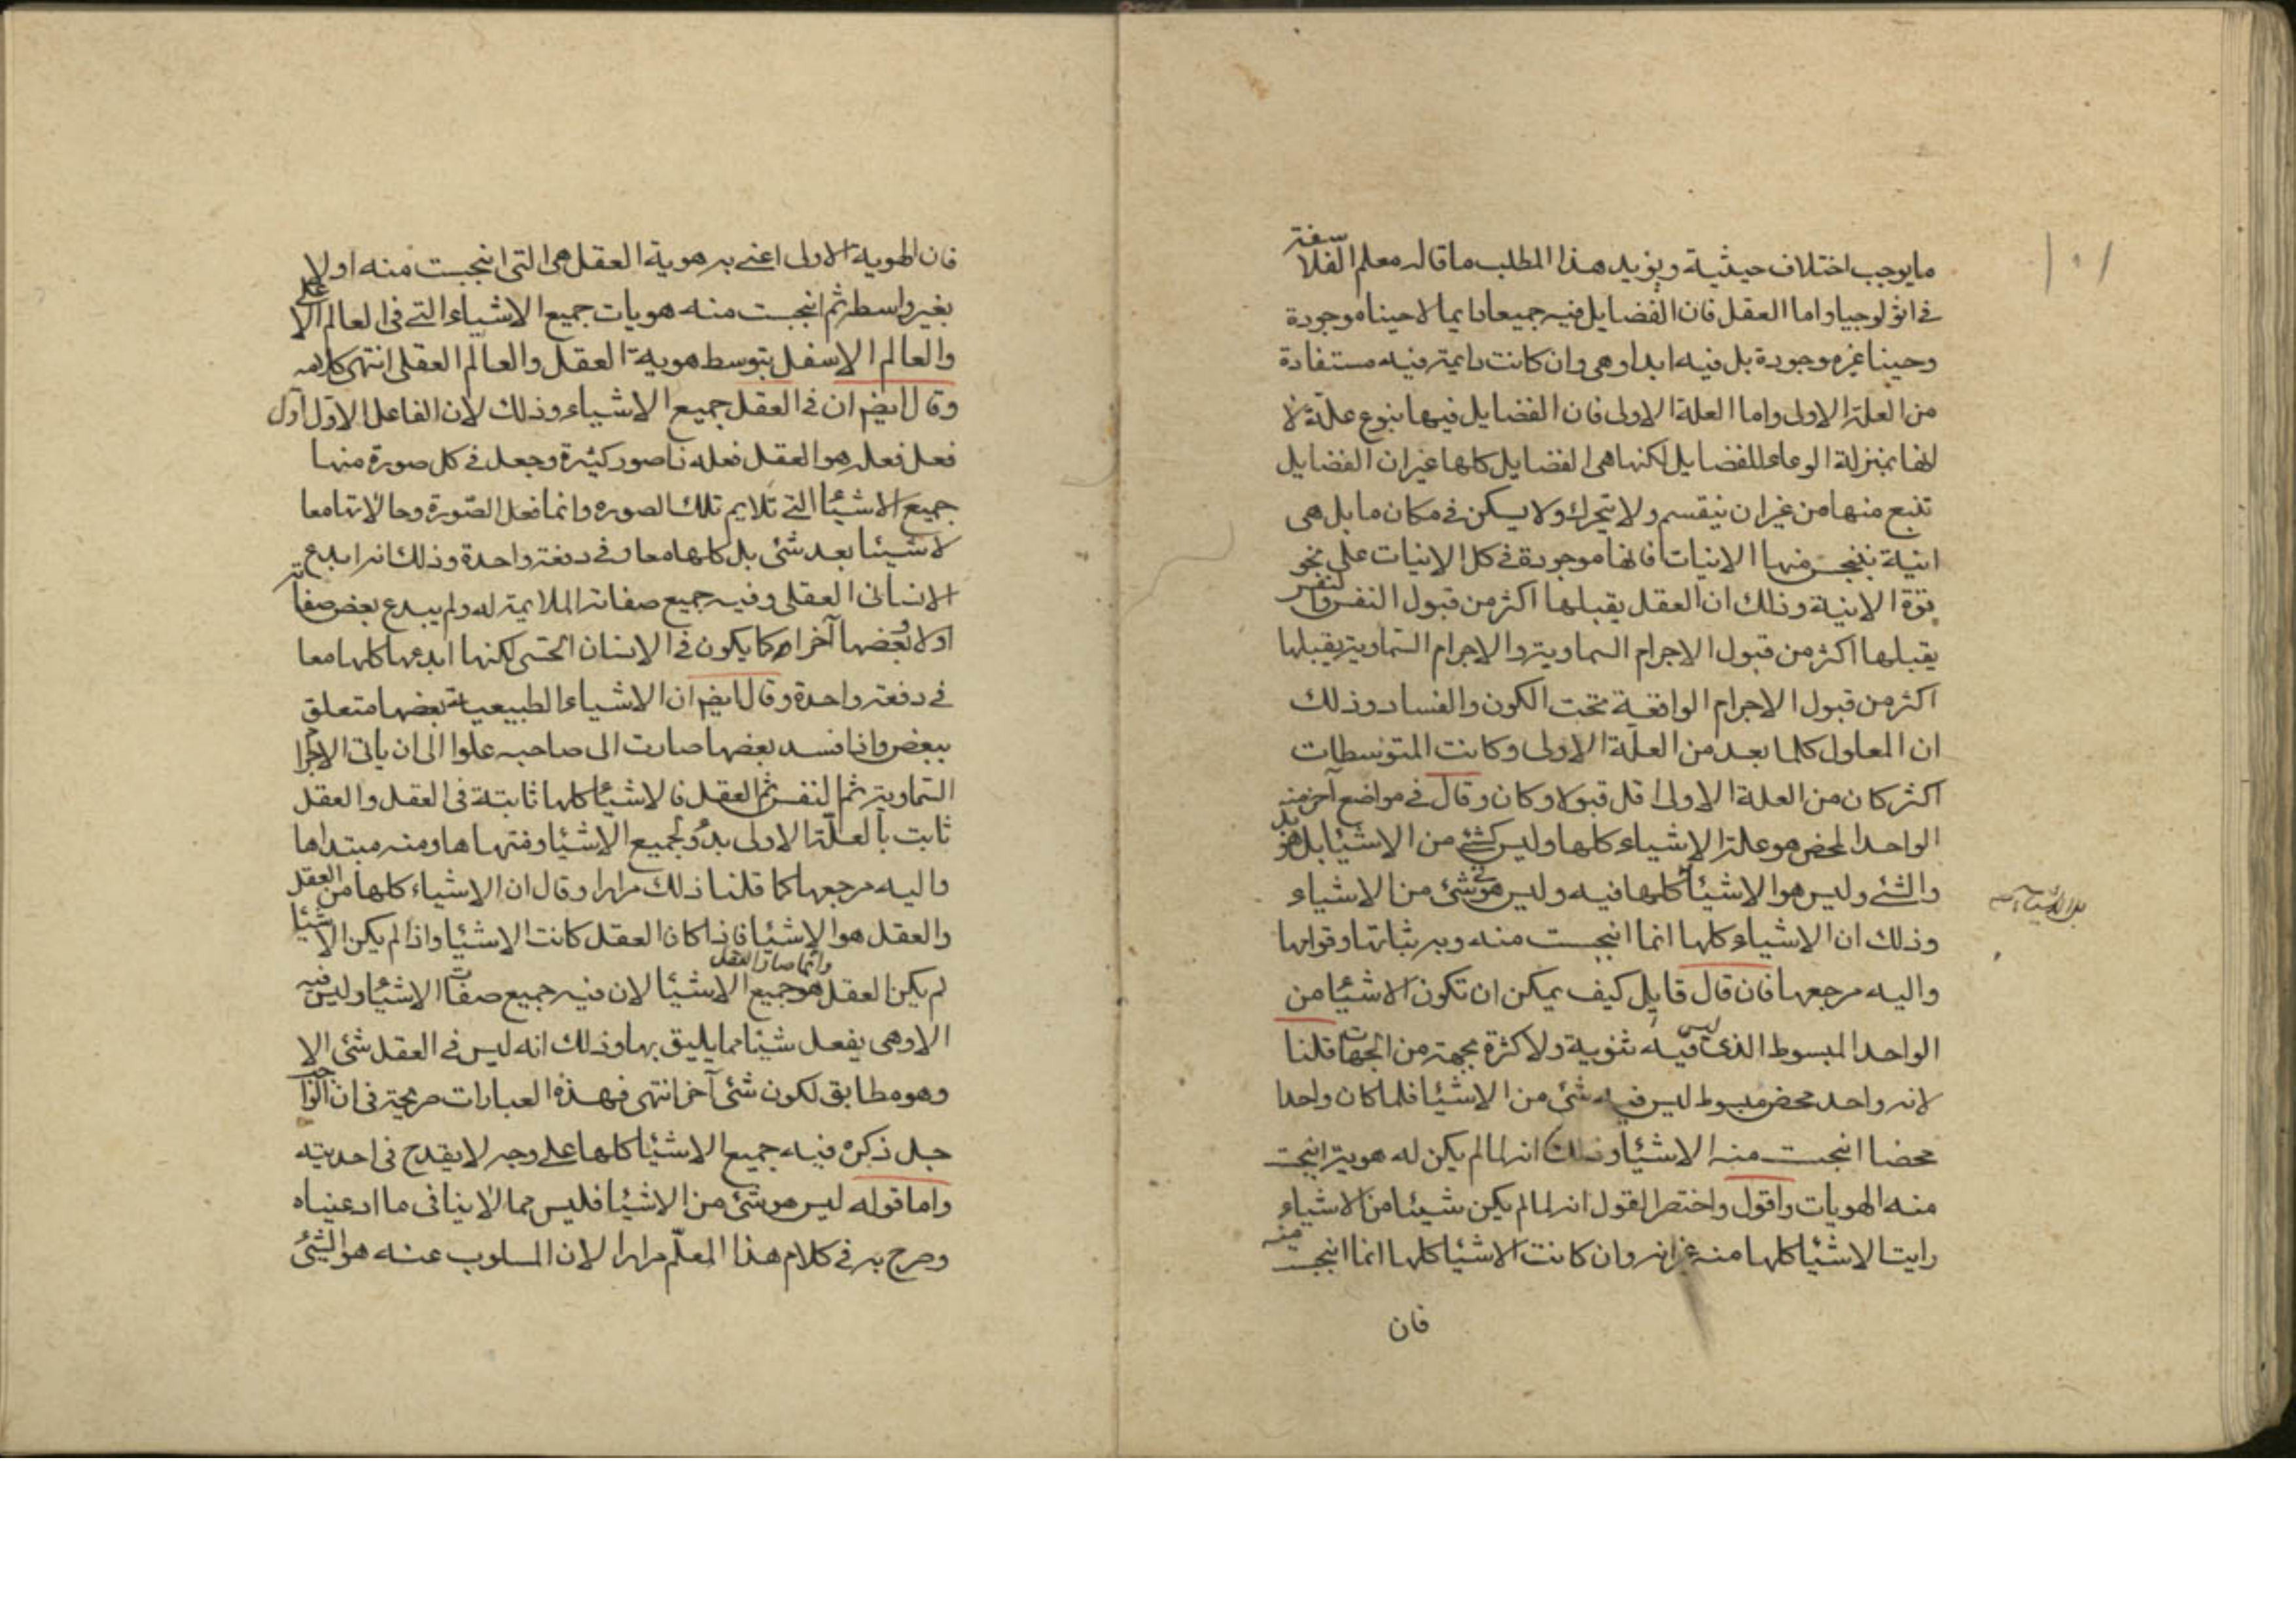 ١٠١
ما يوجب اختلاف حيثية ويؤيد هذا المطلب ما قاله معلم الفلاسفة
في اثولوجيا واما العقل فان الفضايل فيه جميعا دايما لا حينا موجودة
وحينا غير موجودة بل فيه ابدا وهي وان كانت دايمة فيه مستفادة
من العلة الاولى واما العلة الاولى فان الفضايل فيها بنوع علة لا
انها بمنزلة الوعاء للفضايل لكنها هي الفضايل كلها غير ان الفضايل
تنبع منها من غير ان ينقسم ولا يتحرك ولا يسكن في مكان ما بل هي
انية ينبجس منها الانيات فانها موجودة في كل الانيات على نحو
قوة الانية وذلك ان العقل يقبلها اكثر من قبول النفس والنفس
يقبلها اكثر من قبول الاجرام السماوية والاجرام السماوية يقبلها
اكثر من قبول الاجرام الواقعة تحت الكون والفساد وذلك
ان المعلول كلما بعد من العلة الاولى وكانت المتوسطات
اكثر كان من العلة الاولى اقل قبولا وكان وقال في مواضع آخر منه
الواحد المحض هو علة الاشياء كلها وليس كشئ من الاشيا بل هو بدء
والشئ وليس هو الاشيا كلها فيه وليس هو في شئ من الاشياء
وذلك ان الاشياء كلها انما انبجست منه وبه ثباتها وقوامها
واليه مرجعها فان قال قايل كيف يمكن ان تكون الاشيا من
الواحد المبسوط الذي ليس فيه ثنوية ولا كثرة بجهة من الجهات قلنا
لانه واحد محض مبسوط ليس فيه شئ من الاشيا فلما كان واحدا
محضا انبجست منه الاشيا وذلك انه لما لم يكن له هوية انبجست
منه الهويات واقول واختصر القول انه لما لم يكن شيئا من الاشياء
رايت الاشيا كلها منه غير انه وان كانت الاشيا كلها انما انبجست منه
فان
فان الهوية الاولى اعني به هوية العقل هي التي انبجست منه اولا
بغير واسطة ثم انبجست منه هويات جميع الاشياء التي في العالم الاعلى
والعالم الاسفل بتوسط هوية العقل والعالم العقلي انتهى كلامه
وقال ايضم ان في العقل جميع الاشياء وذلك لان الفاعل الاول اول
فعل فعله هو العقل فعله ذا صور كثيرة وجعل في كل صورة منها
جميع الاشيا التي تلايم تلك الصوره وانما فعل الصورة وحالاتها معا
لا شيئا بعد شئ بل كلها معا وفي دفعة واحدة وذلك انه ابدع
الانسان العقلي وفيه جميع صفاته الملايمة له ولم يبدع بعض صفاته
اولا وبعضها آخرا كما يكون في الانسان الحسي لكنها ابدعها كلها معا
في دفعة واحدة وقال ايضم ان الاشياء الطبيعية بعضها متعلق
ببعض واذا فسد بعضها صارت الى صاحبه علوا الى ان ياتى الاجرام
السماوية ثم النفس ثم العقل فالاشيا كلها ثابتة في العقل والعقل
ثابت بالعلة الاولى بدؤ لجميع الاشيا ومنتهاها ومنه مبتداها
واليه مرجعها كما قلنا ذلك مرارا وقال ان الاشياء كلها من العقل
والعقل هو الاشيا فاذا كان العقل كانت الاشيا واذا لم يكن الاشيا
لم يكن العقل وانما صار العقل هو جميع الاشيا لان فيه جميع صفات الاشيا وليس فيه
الا وهي يفعل شيئا مما يليق بها وذلك انه ليس في العقل شئ الا
وهو مطابق لكون شئ آخر انتهى فهذه العبارات صريحة في ان الواحد
جل ذكره فيه جميع الاشيا كلها على وجه لا يقدح في احديته
واما قوله ليس هو شئ من الاشيا فليس مما لا ينافى ما ادعيناه
وصرح به في كلام هذا المعلم مرارا لان المسلوب عنه هو الشئ